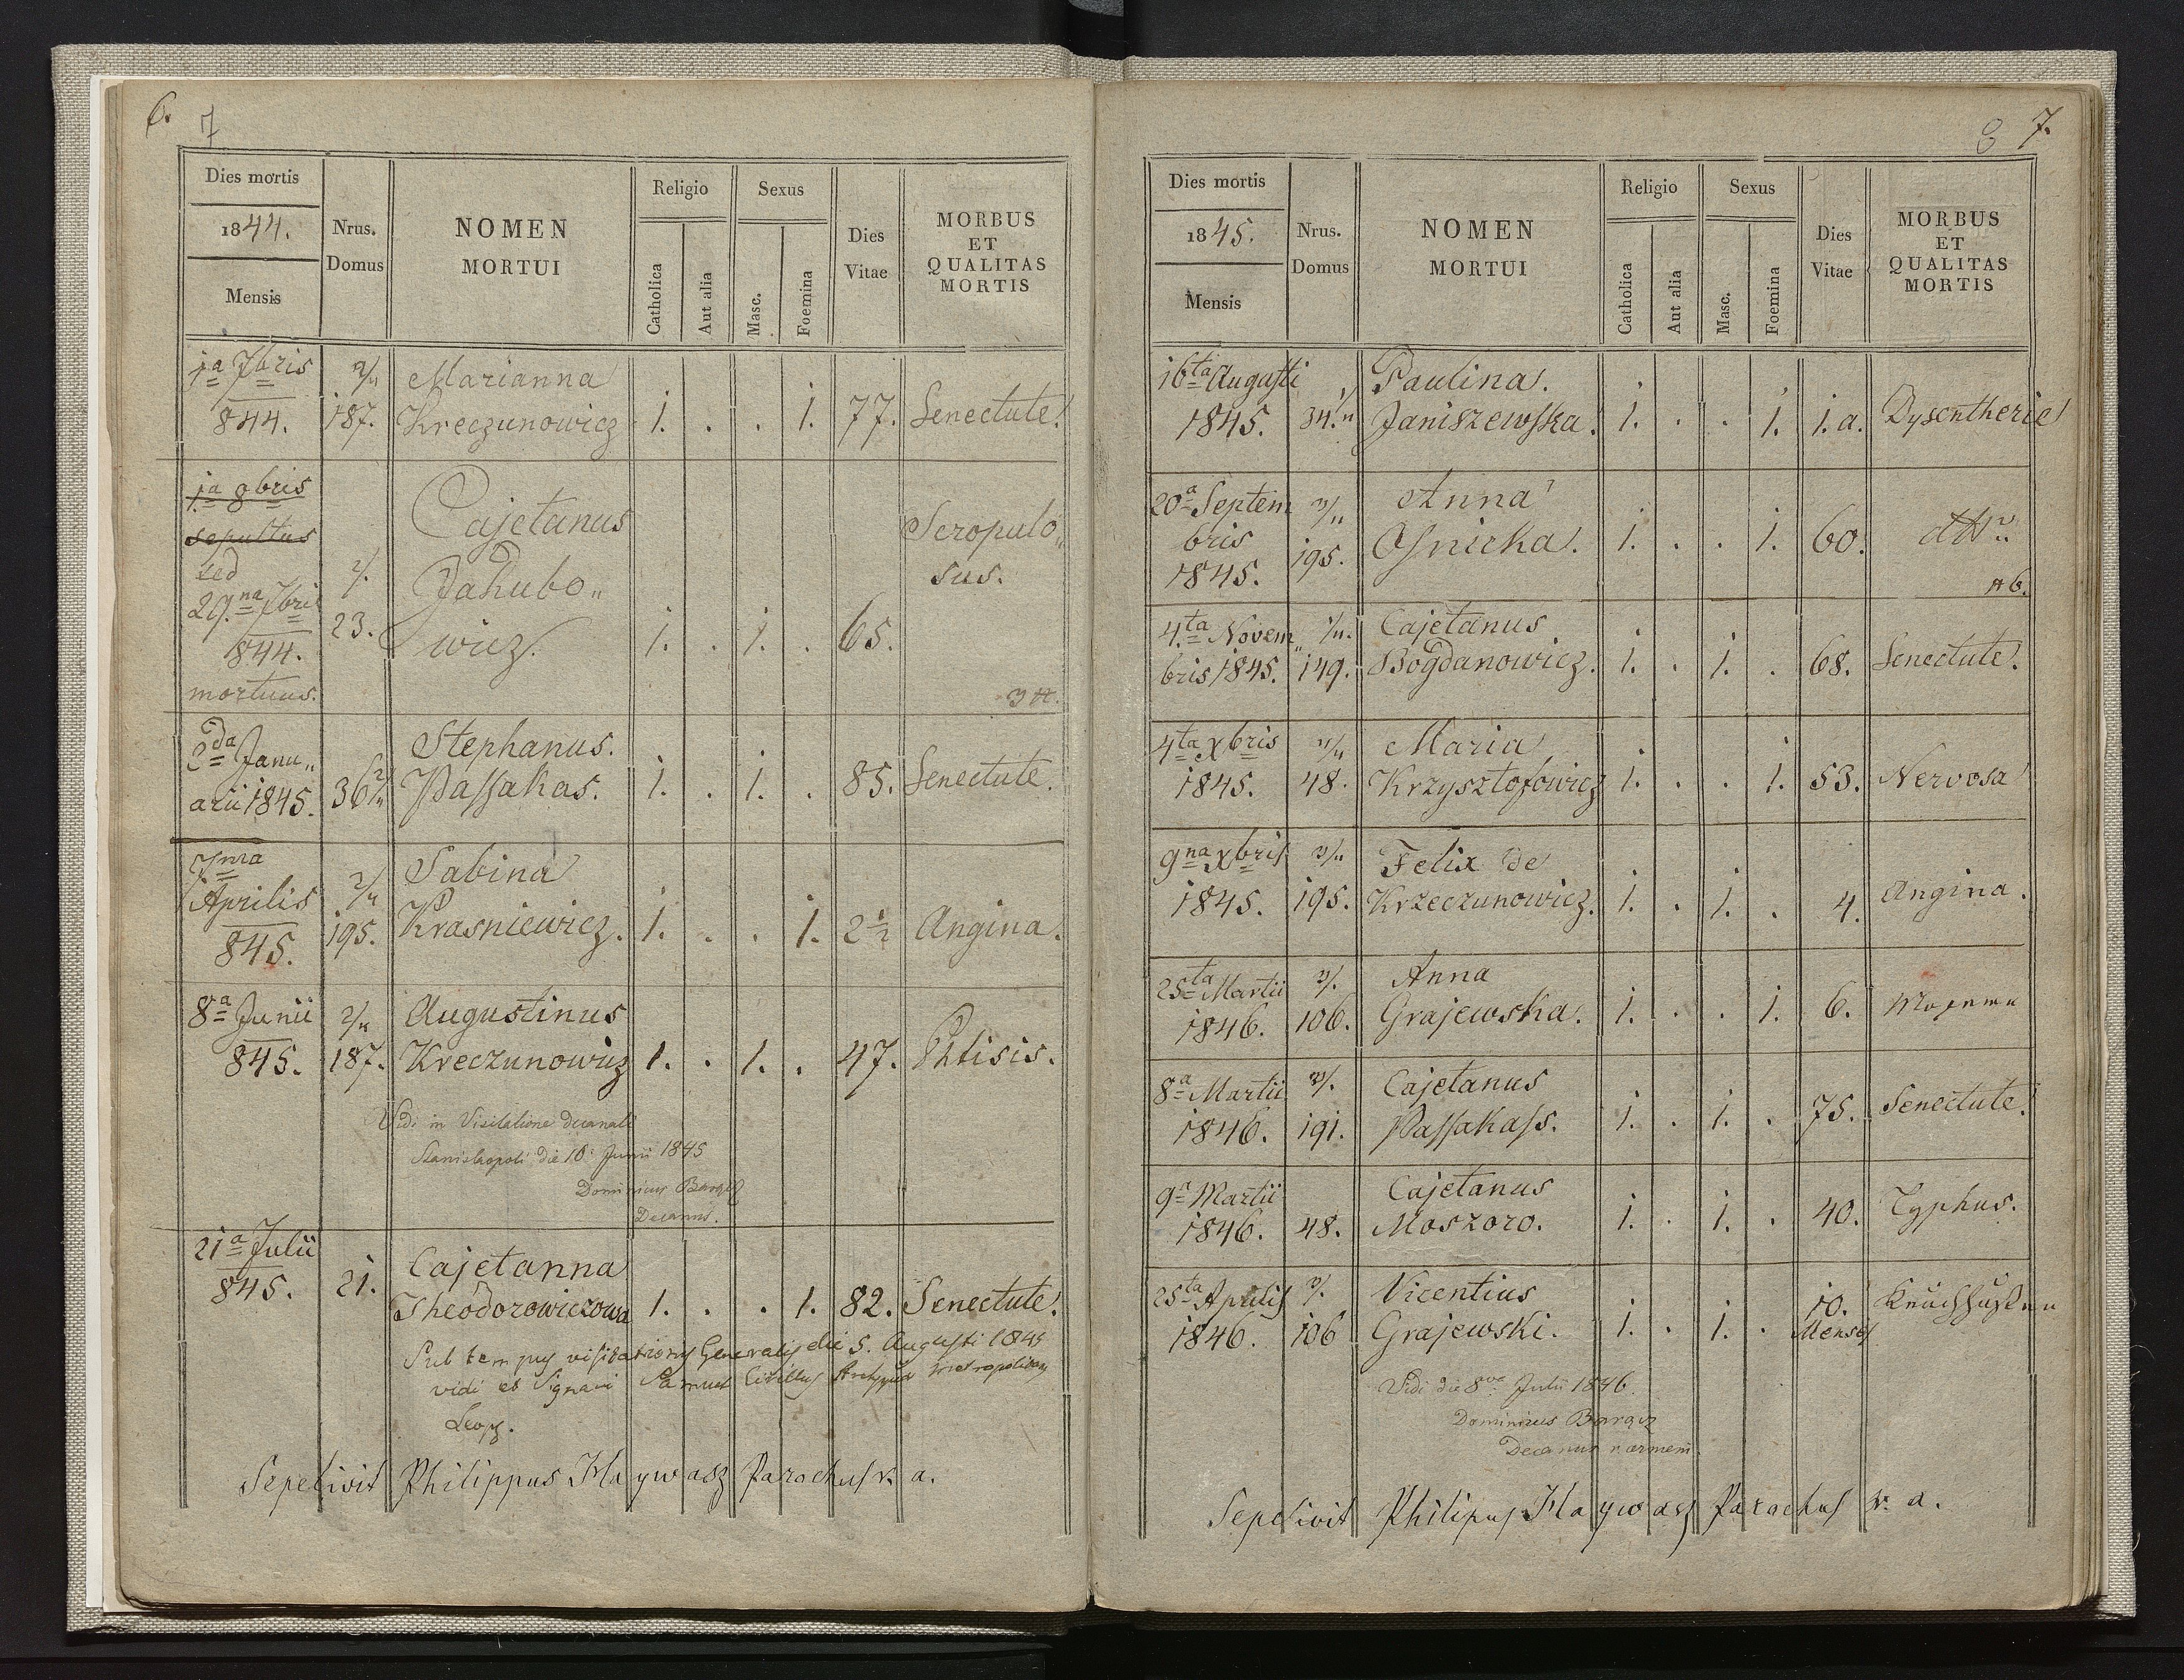 6.
7
Dies mortis
1844.
Mensis
Nrus.
Domus
NOMEN
MORTUI
Religio
Catholica
Aut alia
Sexus
Masc.
Foemina
Dies
Vitae
MORBUS
ET
QUALITAS
MORTIS
1a 7bris 2/" Marianna
844. 187. Kreczunowicz 1. . . 1. 77. Senectute.
1a 8bris
sepultus
sed
29.na 7bris
844.
mortuus.
2/.
23.
Cajetanus
Jakubo„
wicz.
1. . 1. . 65.
Scropulo„
sus.
2da Janu„ Stephanus.
arii 1845. 36 2/" Passakas. 1. . 1. . 85. Senectute.
7ma Sabina
Aprilis 2/" Krasniewicz. 1. . . 1. 2½ Angina.
845. 195.
8a Junii 2/" Augustinus
845. 187. Kreczunowicz 1. . 1. . 47. Phtisis.
Vidi in Visitatione decanali
Stanislaopoli die 10 Junii 1845
Dominicus Barącz
Decanus.
21a Julii Cajetanna
845. 21. Theodorowiczowa 1. . . 1. 82. Senectute.
Sub tempus visitationis Generalis die 5. Augusti 1845
vidi et Signavi Samuel Cirillus Archippus Metropolitanus
Leop.
Sepelivit Philippus Haywasz Parochus r. a.
8 7.
Dies mortis
1845.
Mensis
Nrus.
Domus
NOMEN
MORTUI
Religio
Catholica
Aut alia
Sexus
Masc.
Foemina
Dies
Vitae
MORBUS
ET
QUALITAS
MORTIS
16ta Augusti Paulina.
1845. 34. Janiszewska. 1. . . 1. 1. a. Dysentherie
20a Septem 2/" Anna
bris 195. Osnicka. 1. . . 1. 60.
1845.
4.ta Novem„ 1/". Cajetanus
bris 1845. 149. Bogdanowicz. 1. . 1. . 68. Senectute.
4ta xbris 2/" Maria
1845. 48. Krzysztofowicz 1. . . 1. 53. Nervosa
9na xbris 2/" Felix de
1845. 195. Krzeczunowicz. 1. . 1. . 4. Angina.
25ta Martii 2/. Anna
1846. 106. Grajewska. 1. . . 1. 6.
8a Martii 2/. Cajetanus
1846. 191. Passakass. 1. . 1. . 75. Senectute.
9a Martii Cajetanus
1846. 48. Moszoro. 1. . 1. . 40. Typhus.
25ta Aprilis 2/. Vicentius
1846. 106 Grajewski. 1. . 1. . 10. Menses
Vidi die 8va Julii 1846.
Dominicus Barącz
Decanus r. armeni.
Sepelivit Philipus Haywasz Parochus r. a.